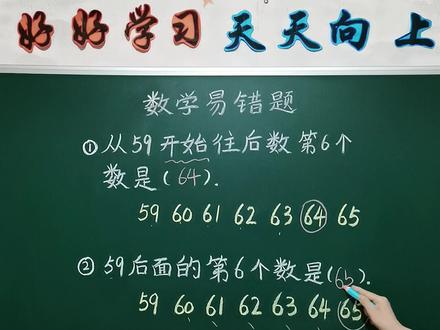 好好学习 天天向上
数学易错题
①从59开始往后数第6个
数是(64).
59 60 61 62 63 64 65
②59后面的第6个数是(65).
59 60 61 62 63 64 65